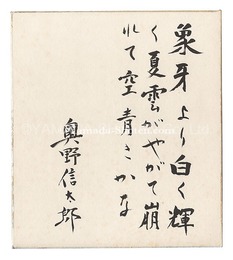 象牙より白く輝
く夏雲がやがて崩
れて空青きかな
奥野信太郎